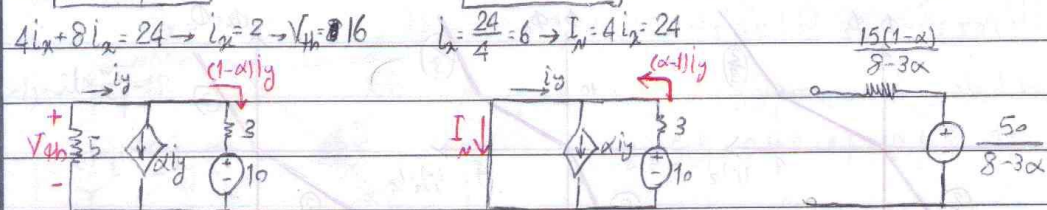 4ix+8ix=24→ ix=2→Vth=16    ix=24/4=6→ IN=4ix=24
15(1-α)/8-3α
iy (1-α)iy
iy (α-1)iy
+ Vth - 5 αiy 3 + - 10
IN αiy 3 + - 10
+ - 50/8-3α